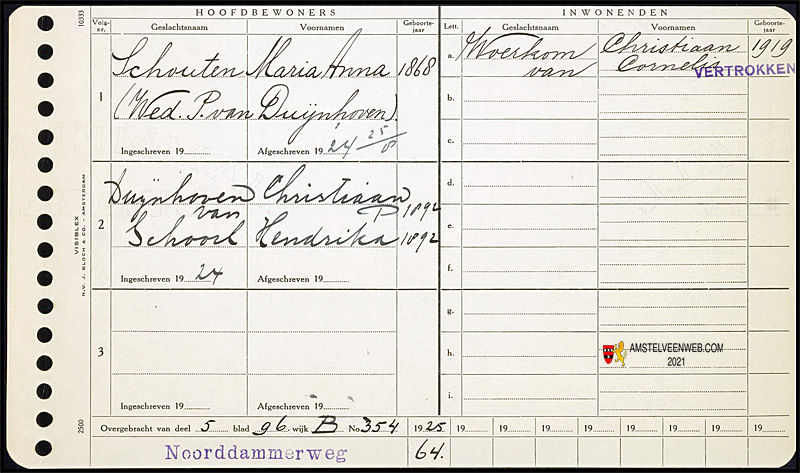 HOOFDBEWONERS
INWONENDEN
Volg-nr.
Geslachtsnaam
Voornamen
Geboorte-jaar
Lett.
Geslachtsnaam
Voornamen
Geboorte-jaar
1
Schouten Maria Anna 1868
(Wed. P. van Duijnhoven).
Ingeschreven 19
Afgeschreven 19 24 25/8
2
Duijnhoven Christiaan
van P 1892
Schoorl Hendrika 1892
Ingeschreven 19 24
Afgeschreven 19
3
Ingeschreven 19
Afgeschreven 19
a. Woerkom Christiaan 1919
van Cornelis
VERTROKKEN
b.
c.
d.
e.
f.
g.
h.
i.
AMSTELVEENWEB.COM
2021
10333
VISIBLEX
N.V. J. BLOCH & CO. - AMSTERDAM
2500
Overgebracht van deel 5 blad 96 wijk B No. 354 1925 19 19 19 19 19 19 19 19
Noorddammerweg 64.